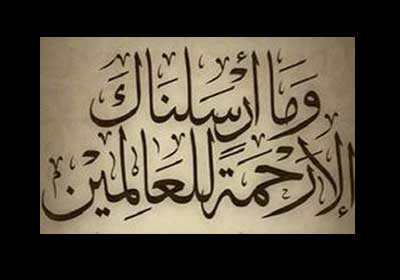 وَمَا أَرْسَلنَاكَ
إلاَّ رَحْمَةً للعَالِمين